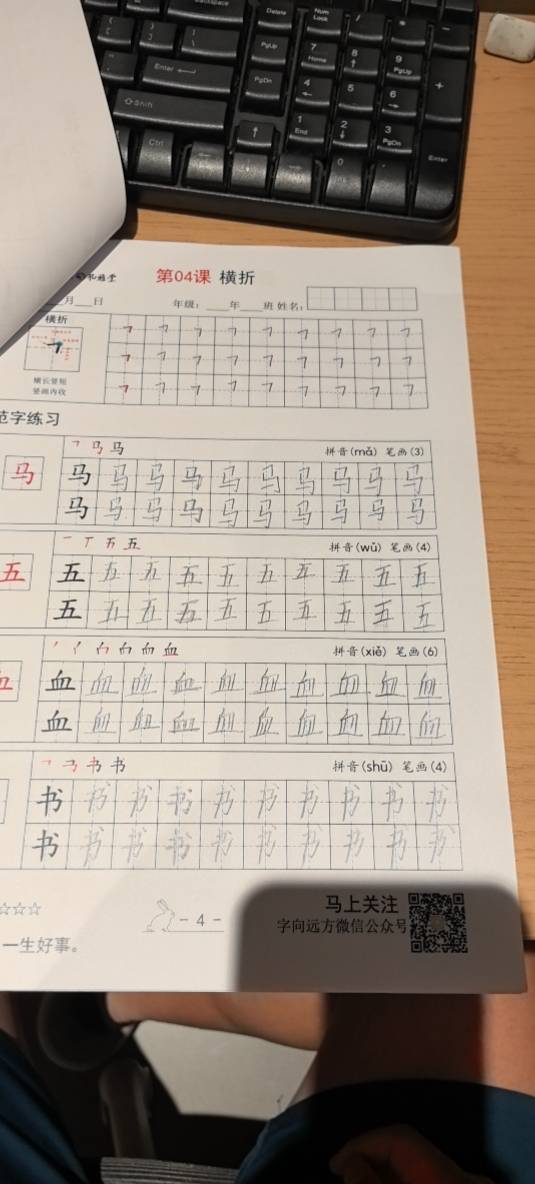 Backspace
Delete
Num Lock
/
*
-
PgUp
7 Home
8 ↑
9 PgUp
+
Enter
PgDn
4 ←
5
6 →
Shift
1 End
2 ↓
3 PgDn
Enter
Ctrl
0
第04课 横折
月 日 年级: 年 班 姓名:
横折
横长竖短
竖画内收
范字练习
马 拼音(mǎ) 笔画(3)
马 马 马 马 马 马 马 马 马 马 马
马 马 马 马 马 马 马 马 马 马
一 丅 五 五 拼音(wǔ) 笔画(4)
五 五 五 五 五 五 五 五 五 五 五
五 五 五 五 五 五 五 五 五 五
血 拼音(xiě) 笔画(6)
血 血 血 血 血 血 血 血 血 血 血
血 血 血 血 血 血 血 血 血 血
书 拼音(shū) 笔画(4)
书 书 书 书 书 书 书 书 书 书
书 书 书 书 书 书 书 书 书 书
☆☆☆
- 4 -
一生好事。
马上关注
字向远方微信公众号